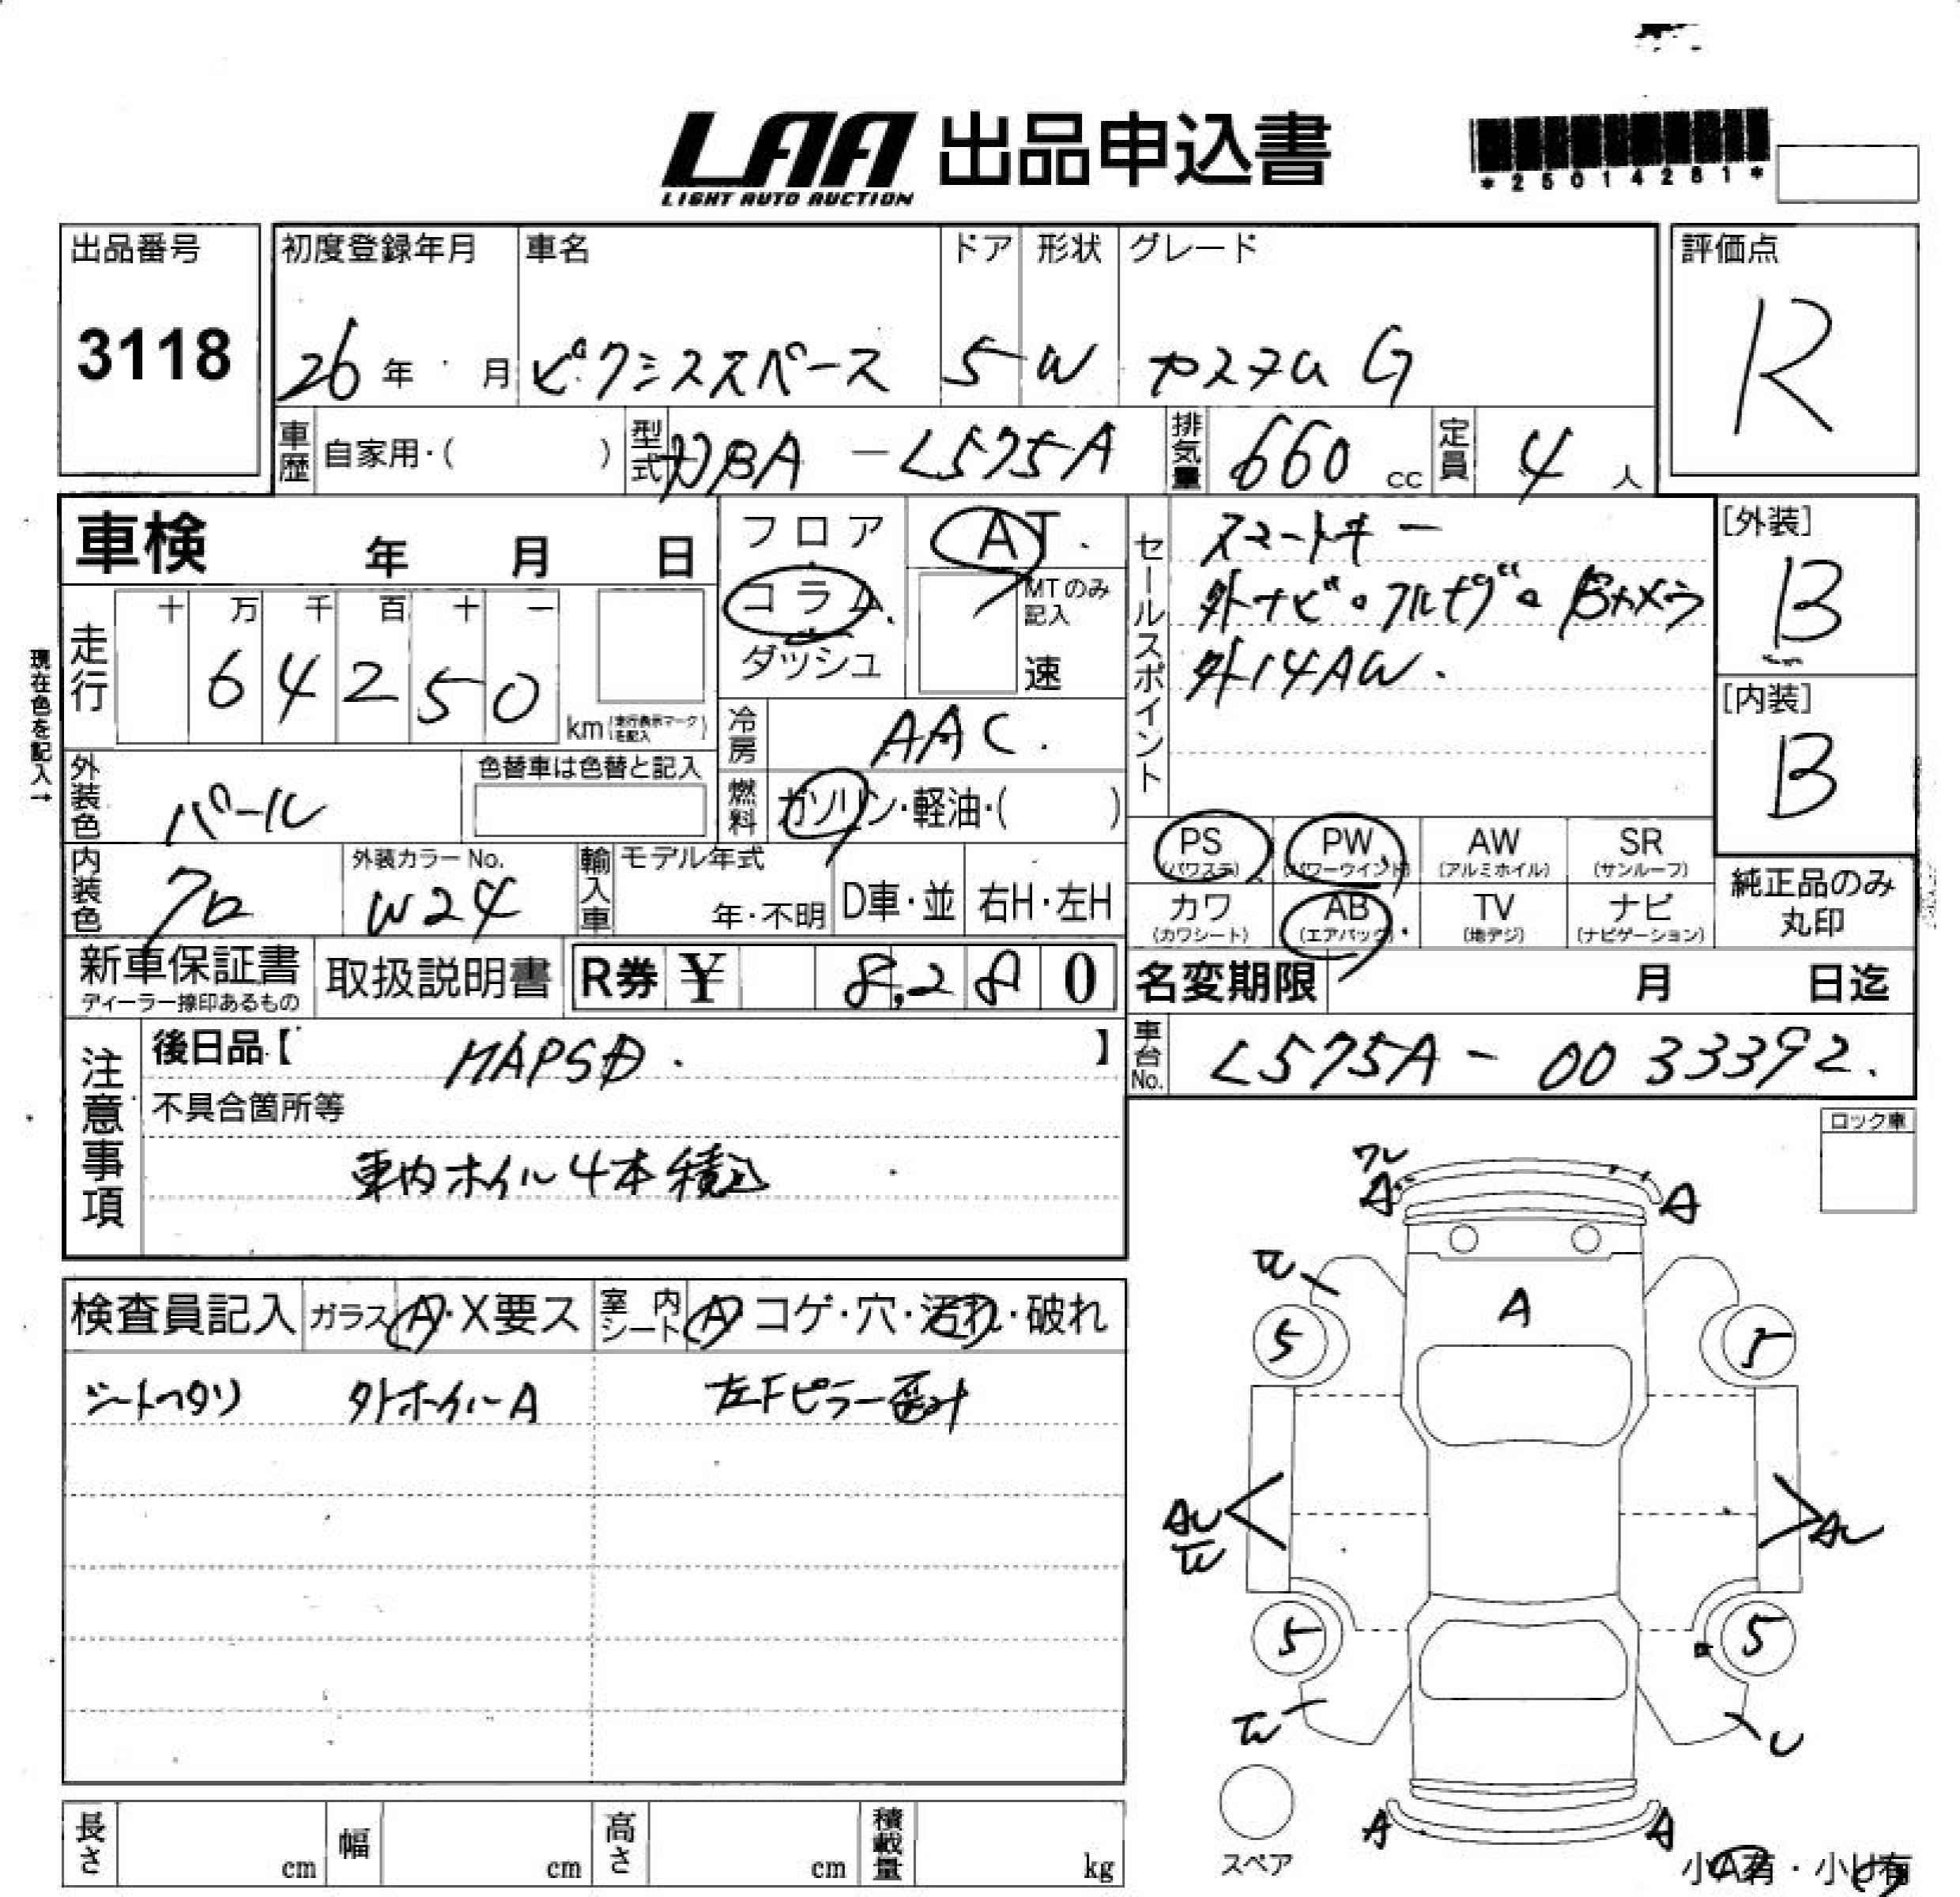 LAA 出品申込書
LIGHT AUTO AUCTION
*25014281*
出品番号 初度登録年月 車名 ドア 形状 グレード 評価点
3118 26年 月 ピクシススペース 5 W カスタム G R
車歴 自家用・( ) 型式 DBA-L575A 排気量 660 cc 定員 4 人
車検 年 月 日
フロア
コラム
ダッシュ
AT
MTのみ記入
速
セールスポイント
スマートキー
外ナビ・フルセグ・Bカメラ
外14AW.
[外装]
B
[内装]
B
現在色を記入→
走行 十 万 千 百 十 一
6 4 2 5 0 km (走行表示マークを記入)
冷房 AAC.
燃料 ガソリン・軽油・( )
外装色 パール 色替車は色替と記入
内装色 クロ 外装カラーNo. W24
輸入車 モデル年式 年・不明 D車・並 右H・左H
PS (パワステ) PW (パワーウインド) AW (アルミホイル) SR (サンルーフ)
カワ (カワシート) AB (エアバック) TV (地デジ) ナビ (ナビゲーション)
純正品のみ丸印
新車保証書 ディーラー捺印あるもの 取扱説明書 R券 ¥ 8,280
名変期限 月 日迄
車台No. L575A-0033392.
注意事項
後日品【 】
不具合箇所等
車内ホイル4本積込
ロック車
検査員記入 ガラス A・X要ス 室内シート A コゲ・穴・汚れ・破れ
シートヘタリ 外ホイルA 左Fピラー
ワレ
A A
A
5 5
AU AU
5 5
U
A A
スペア
小A有・小U有
長さ cm 幅 cm 高さ cm 積載量 kg